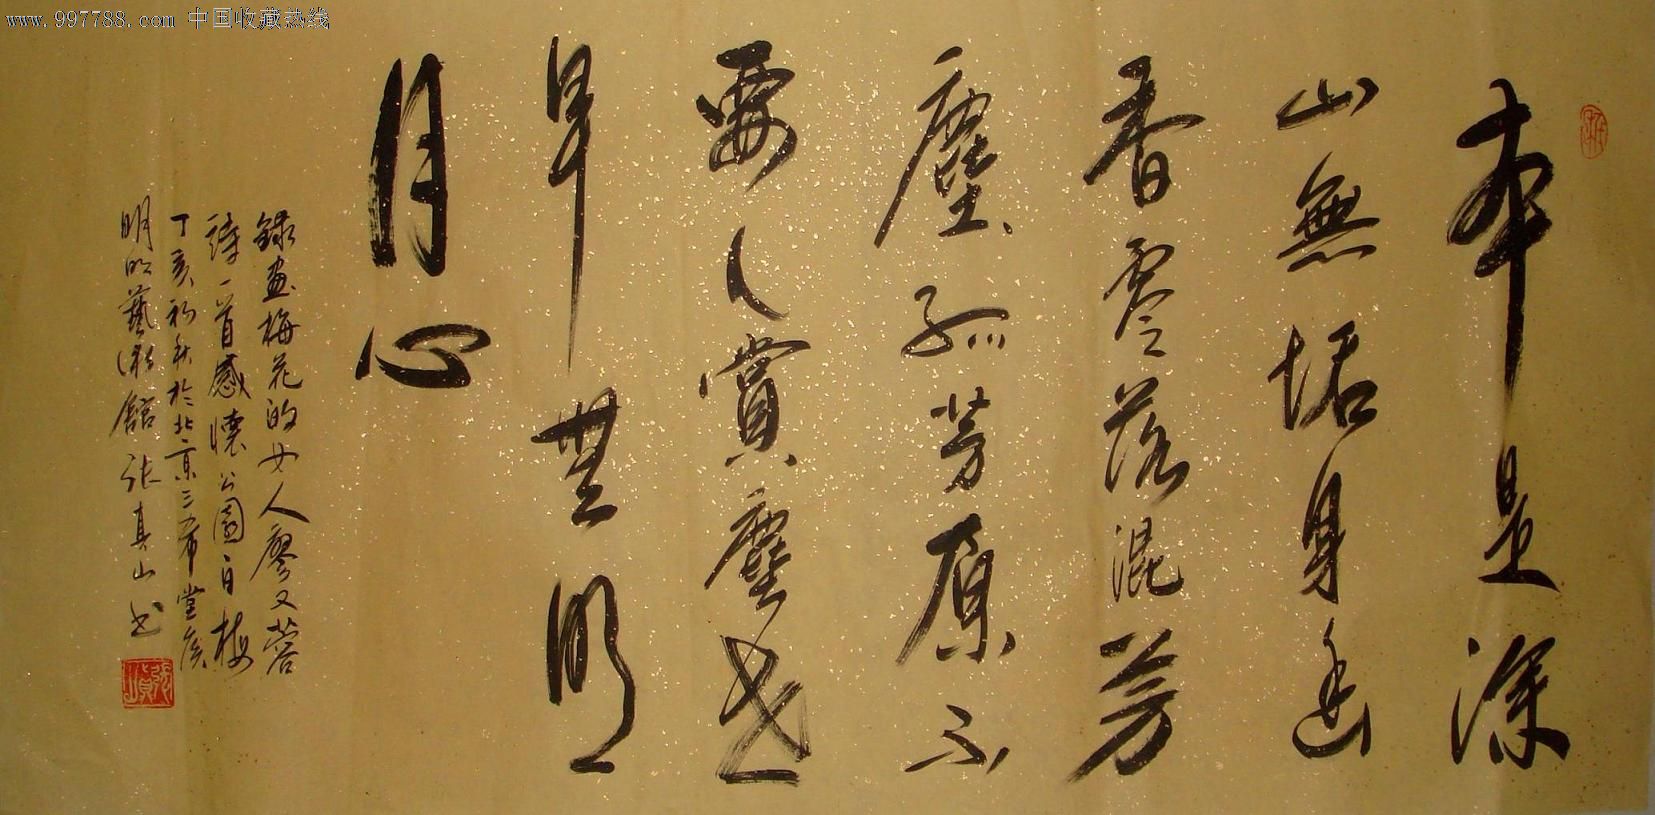 www.997788.com 中国收藏热线
本是深
山無垢身幽
香零落混芳
塵孤芳原不
要人賞塵世
早無明
月心
錄画梅花的女人廖文蓉
詩一首感懷公園一白梅
丁亥初秋於北京三希堂美
明明藝術館張真山书